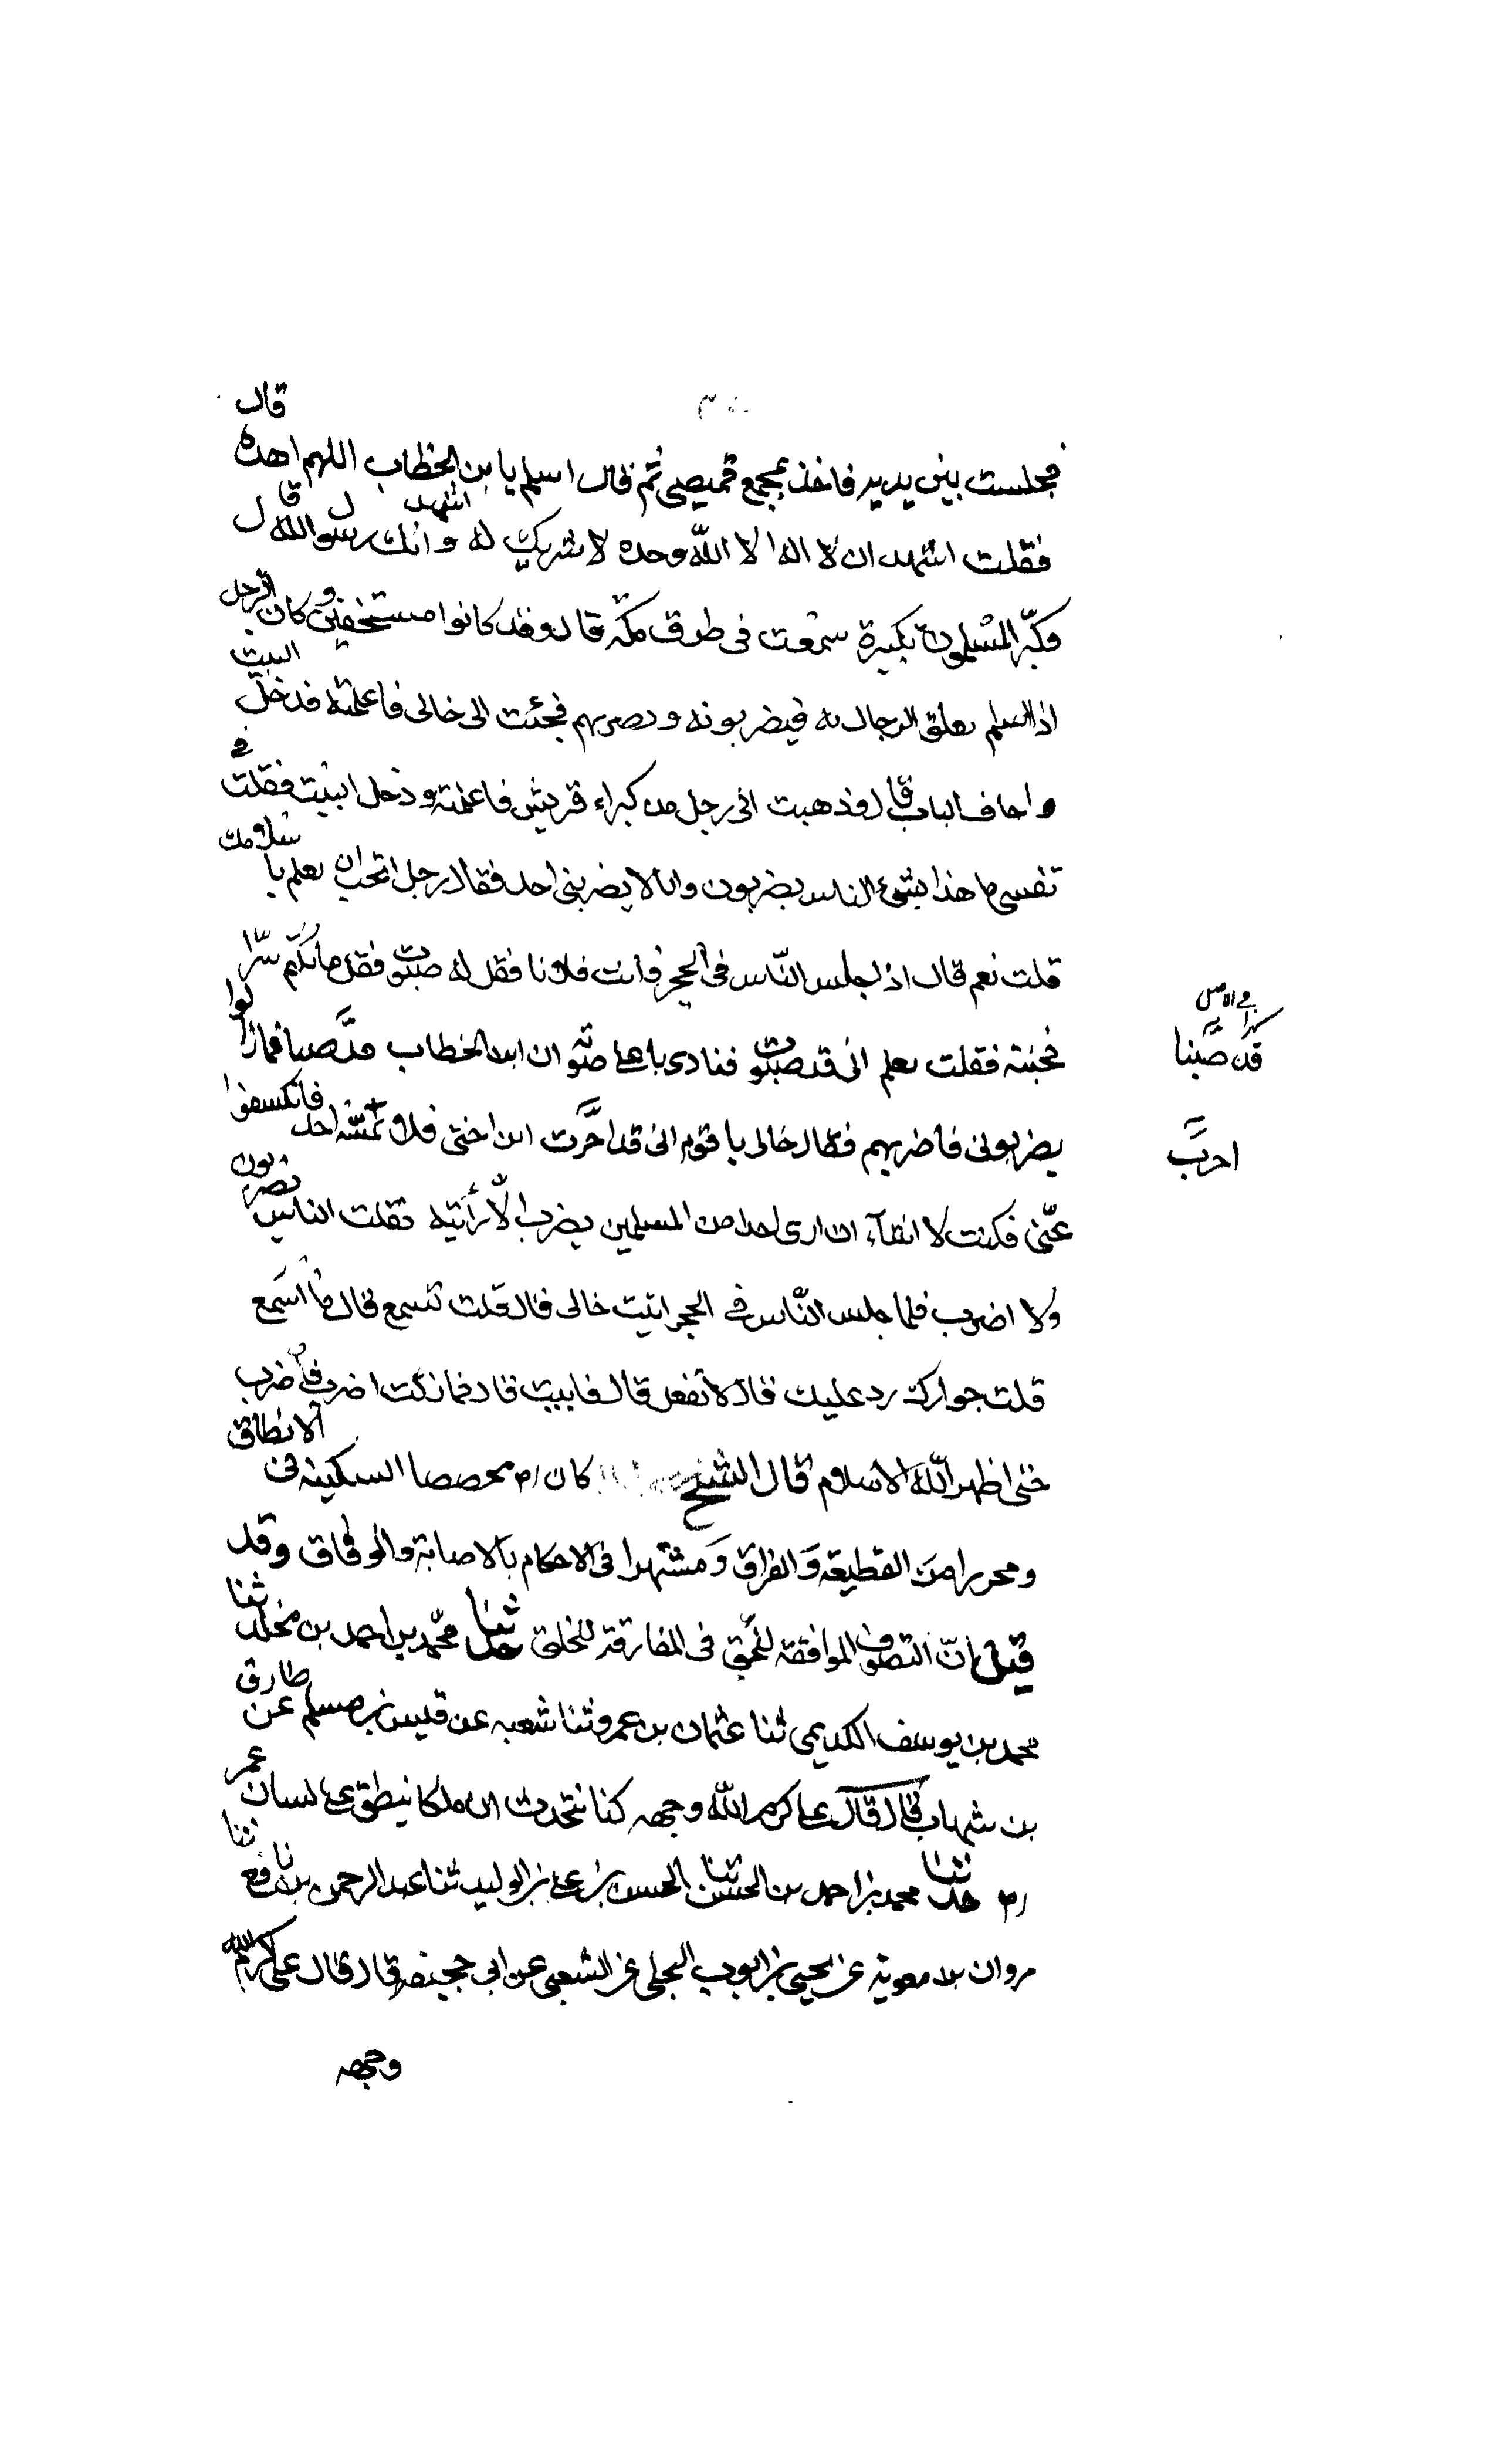 فجلست بين يديه فاخذ بمجمع قميصى ثم قال اسلم يا بن الخطاب اللهم اهده قال
فقلت اشهد ان لا اله الا الله وحده لا شريك له و اشهد انك رسول الله قال
فكبّر المسلمون تكبيرة سمعت فى طرق مكة قال وقد كانوا مستخفين وكان الرجل
اذا اسلم تعلق الرجال به فيضربونه و يضربهم فجئت الى خالى فاعلمته فدخل البيت
واجاف الباب قال فذهبت الى رجل من كبراء قريش فاعلمته ودخل البيت فقلت فى
نفسى ما هذا بشئ الناس يضربون وانا لا يضربنى احد فقال رجل اتحب ان يعلم باسلامك
قلت نعم قال اذا جلس الناس فى الحجر فأت فلانا فقل له صبوت فقل ما يكتم سرّا
فجئته فقلت تعلم انى قد صبوت فنادى باعلى صوته ان ابن الخطاب قد صبا فمازالوا
يضربونى فاضربهم فقال خالى يا قوم انى قد اجرت ابن اختى فلا يمسّه احد فانكسفوا
عنّى فكنت لا اشآء ان ارى احدا من المسلمين يضرب الا رأيته فقلت الناس يضربون
ولا اضرب فلما جلس النّاس فى الحجر اتيت خالى قال قلت تسمع قال ما اسمع
قلت جوارك رد عليك قال لا تفعل قال فابيت قال فمازلت اضرب واضرب
حتى اظهر الله الاسلام قال الشيخ كان رم مخصصا السكينه فى الانطاق
ومحررا من القطيعه والفراق و مشتهرا فى الاحكام بالاصابة والوفاق وقد
قيل انّ التصوف الموافقه للحق فى المفارقة للخلق حدثنا محمد بن احمد بن مخلد ثنا
محمد بن يوسف الكديمي ثنا عثمان بن عمر وثنا شعبه عن قيس بن مسلم عن طارق
بن شهاب قال قال على كرم الله وجهه كنا نتحدث ان ملكا ينطق على لسان عمر
رم حدثنا محمد بن احمد بن الحسن ثنا الحسن بن على بن الوليد ثنا عبد الرحمن بن نافع ثنا
مروان بن معوية عن يحيى بن ايوب البجلى عن الشعبى عن ابى جحيفه قال قال على كرم الله
وجهه
فى الاصل
كذا
قد صبنا
احرب